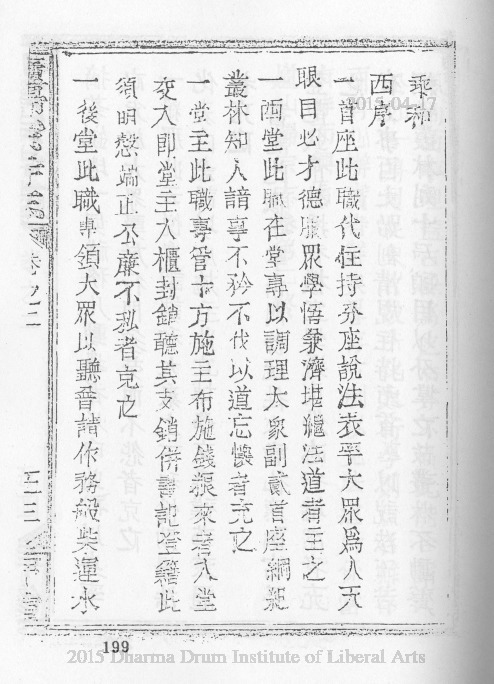 西序
一首座此職代住持分座說法表平大眾為人天
眼目必才德服眾學悟兼濟堪繼法道者主之
一西堂此職在堂專以調理大眾副貳首座綱
叢林知人諳事不矜不伐以道忘懷者充之
一堂主此職專管十方施主布施錢糧來者入堂
交入即堂主入櫃封鎖聽其支銷併書記登籍此
須明愨端正公廉不私者充之
一後堂此職專領大眾以聽普請作務般柴運水
卷之二
199
2013-04-17
2015 Dharma Drum Institute of Liberal Arts